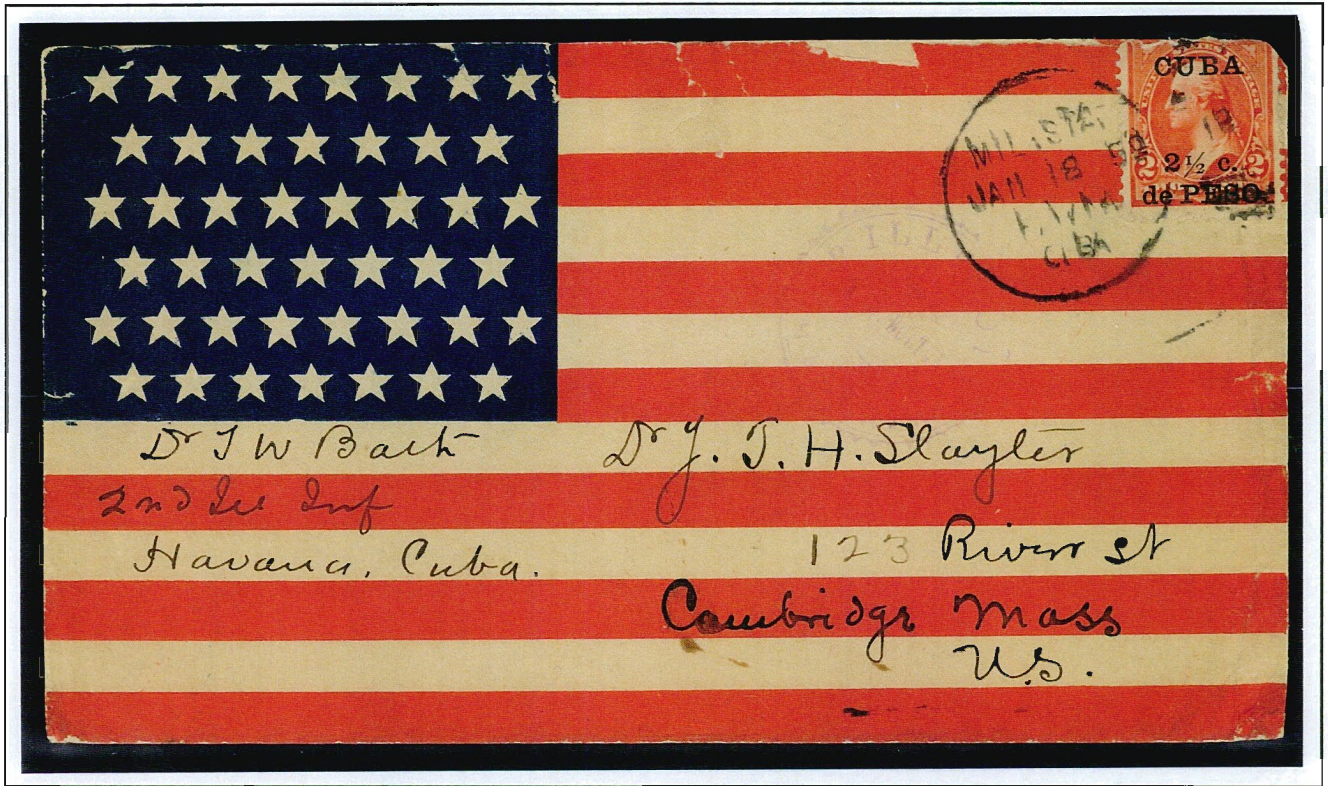 CUBA
2½ c.
de PESO.
2 2
MIL. STA.
JAN 18 99
CUBA
ILL
Dr J W Bart
2nd Ill Inf
Havana, Cuba.
Dr J. T. H. Slayter
123 River St
Cambridge Mass
U.S.